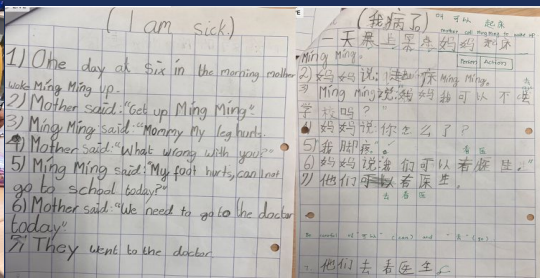 (I am sick.)
1) One day at six in the morning mother
woke Ming Ming up.
2) Mother said: "Get up Ming Ming".
3) Ming Ming said: "Mommy My leg hurts.
4) Mother said: "What wrong with you?"
5) Ming Ming said: "My foot hurts, can I not
go to school today?"
6) Mother said: "We need to go to the doctor
today".
7) They went to the doctor.
(我病了)
可以 起床
一天早上 妈妈
Ming Ming.
2) 妈妈说: Ming Ming.
Ming Ming说: 妈妈我可以不去
学校吗?"
4) 妈妈说:你怎么了?
5) 我脚疼.
看医
6) 妈妈说我们可以看医生."
7) 他们 看医生.
去 看医
他们去看医生